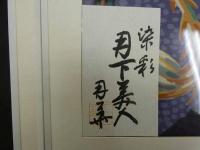 染彩
月下美人